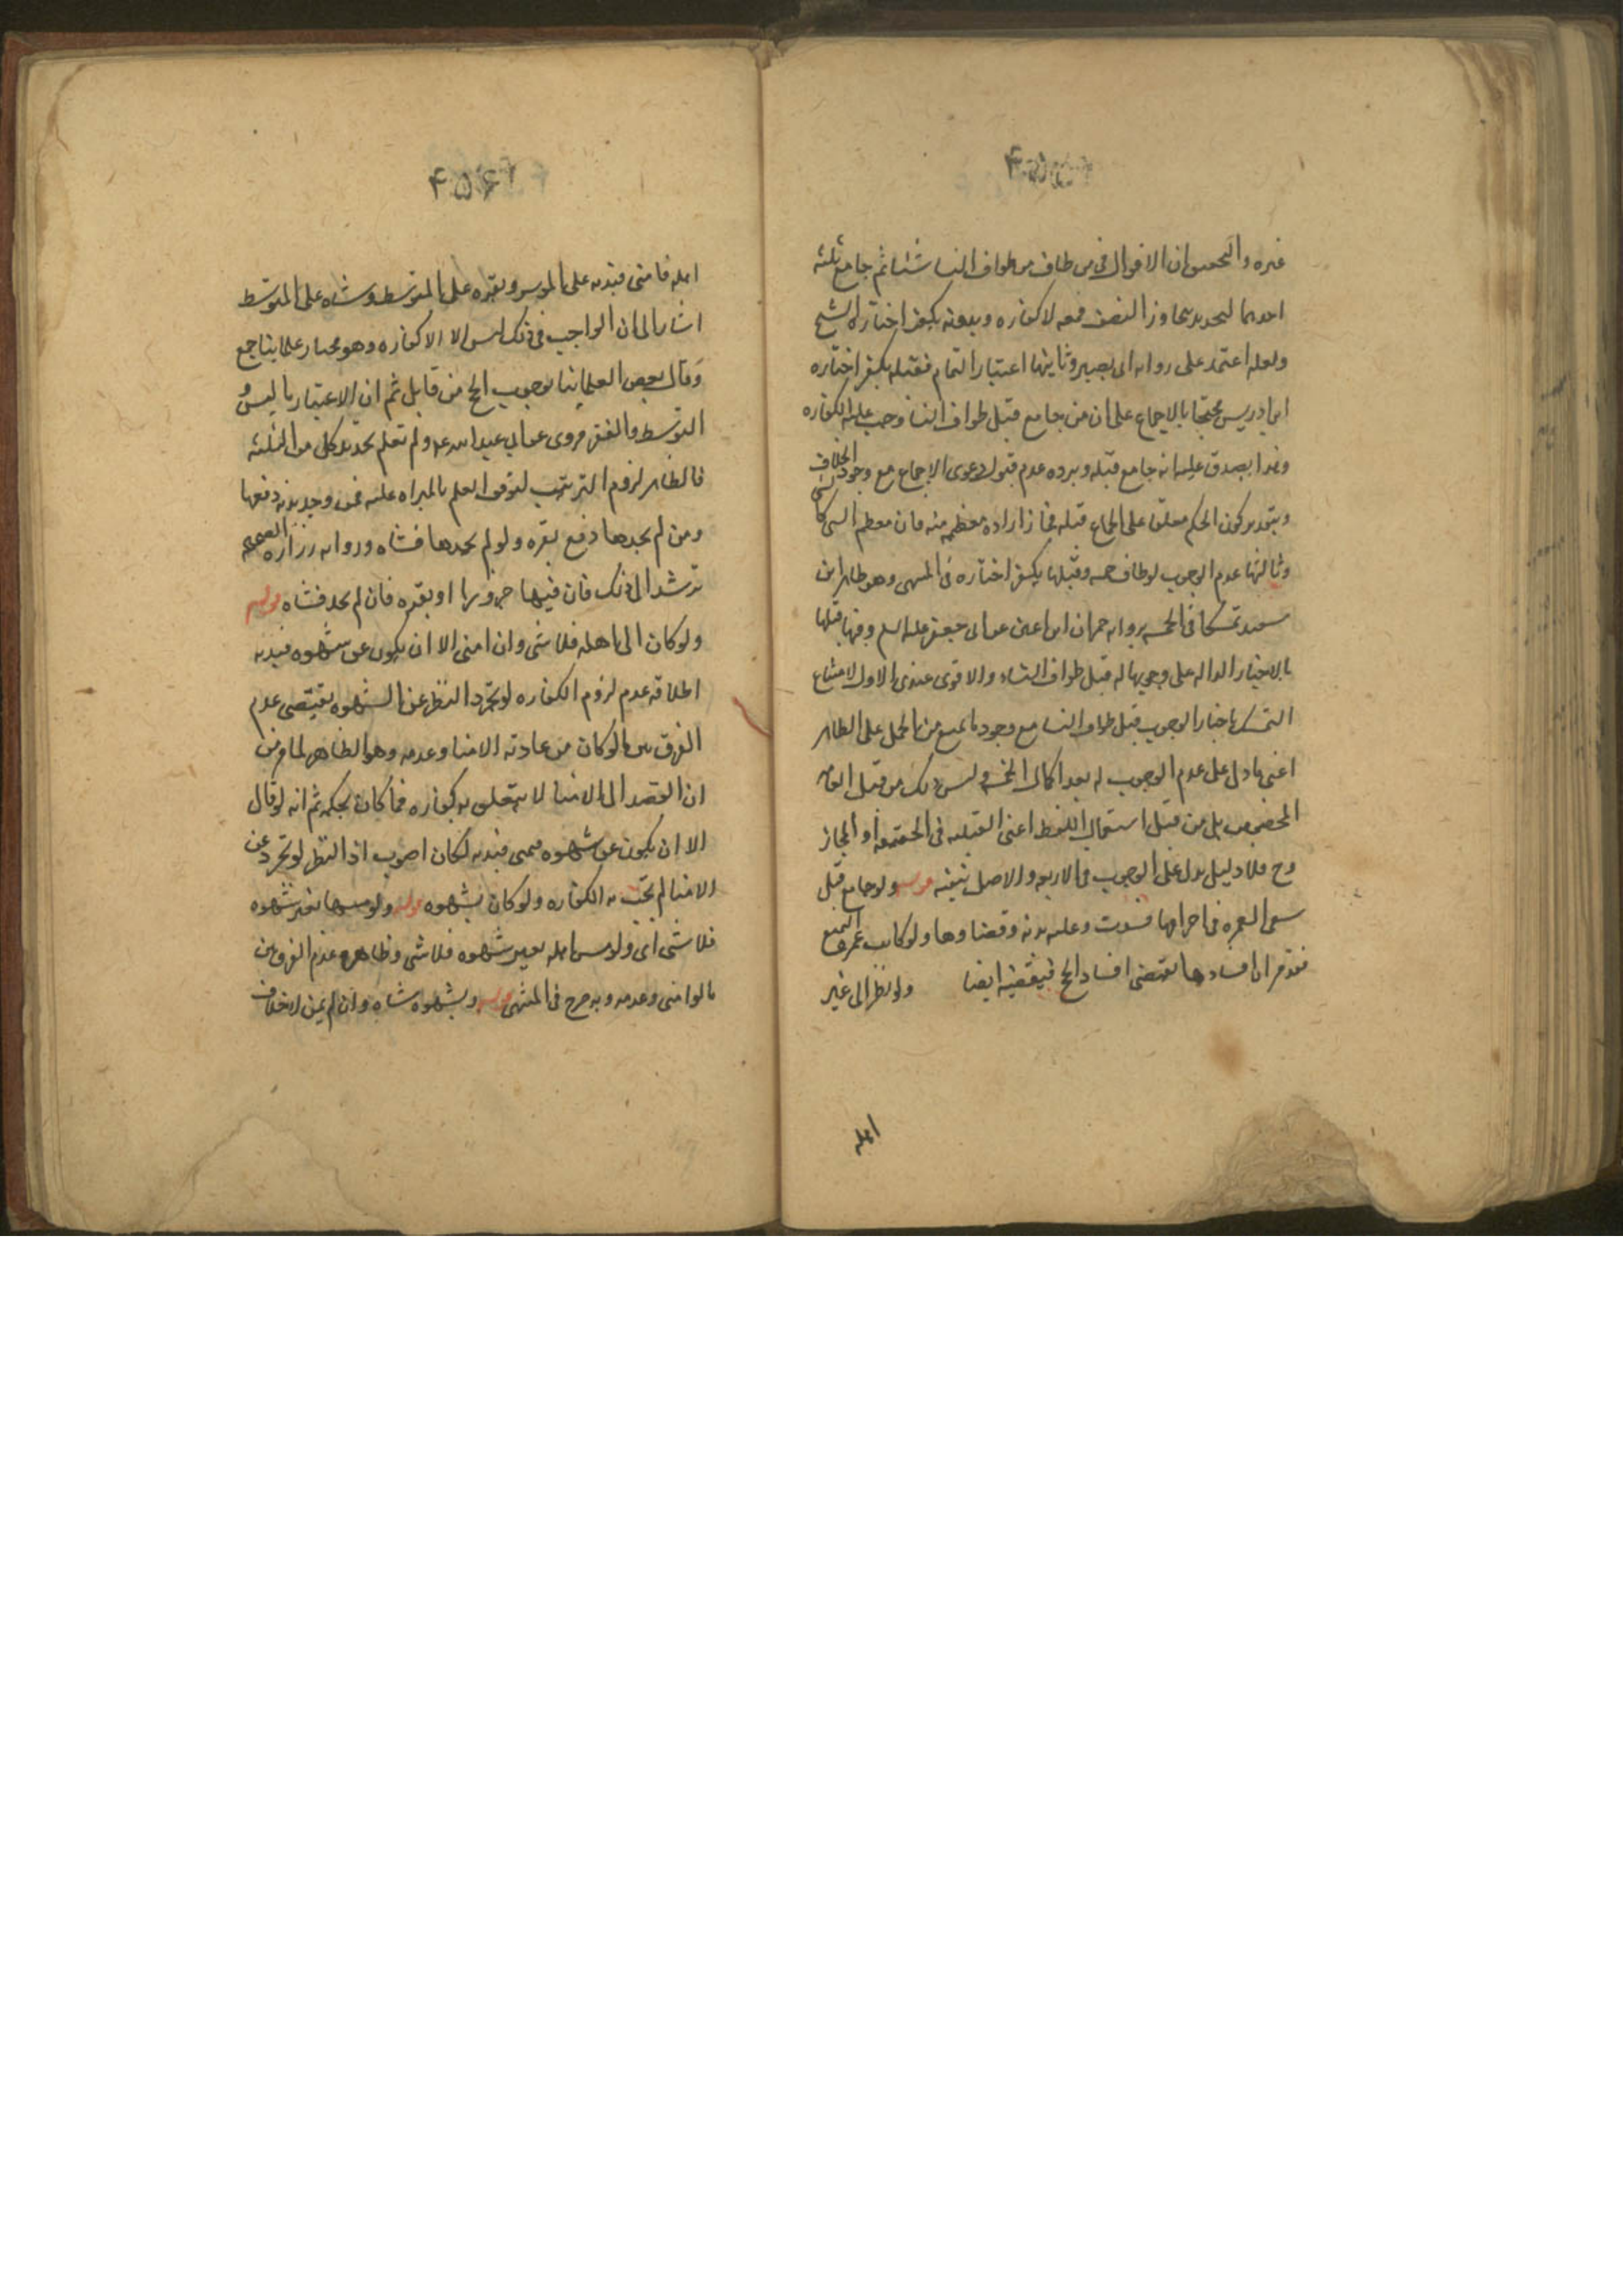 غيره والتحقيق ان الاقوال في من طاف من طواف النساء شيئا ثم جامع ثلثة
احدها التحديد بمجاوز النصف فمعه لا كفاره وبدونه يكفر اختاره الشيخ
ولعله اعتمد على روايه ابى بصير وثانيها اعتبار التمام فقبله يكفر اختاره
ابن ادريس محتجا بالاجماع على ان من جامع قبل طواف النسا وجب عليه الكفاره
وهذا يصدق عليه انه جامع قبله ويرده عدم قبول دعوى الاجماع مع وجود الخلاف
وبتقدير كون الحكم معلقا على الجماع قبله فجاز اراده معظمه منه فان معظم الشى كالشى
وثالثها عدم الوجوب لو طاف خمسه وقبلها يكفر اختاره فى المنتهى وهو ظاهر ابن
سعيد تمسكا فى الخمسه بروايه حمران ابن اعين عن ابى جعفر عليه السلم وفيما قبلها
بالاخبار الداله على وجوبها له قبل طواف النساء والاقوى عندى الاول لامتناع
التمسك باخبار الوجوب قبل طواف النسا مع وجود ما يمنع من الحمل على الظاهر
اعنى ما دل على عدم الوجوب له بعد اكمال الخمسه وليس ذلك من قبل العام
المخصوص بل من قبل استعمال اللفظ اعنى القبليه فى الحقيقه او المجاز
وح فلا دليل يدل على الوجوب فى الاربعه والاصل ينفيه قوله ولو جامع قبل
سعى العمره فى احرامها فسدت وعليه بدنه وقضاوها ولو كانت عمره التمتع
فقد مر ان افسادها يقتضى افساد الحج فيقضيه ايضا ولو نظر الى غير
اهله
۴۵۶
اهله فامنى فبدنه على الموسر وبقره على المتوسط وشاه على المتوسط
اشار الى ان الواجب فى ذلك ليس الا الكفاره وهو مختار علماينا جمع
وقال بعض العلماينا بوجوب الحج من قابل ثم ان الاعتبار باليسر و
التوسط والفقر مروى عن ابى عبد الله عه ولم نعلم تحديد كل من الثلثه
فالظاهر لزوم الترتيب لتوقف العلم بالبراه عليه فمن وجد بدنه دفعها
ومن لم يجدها دفع بقره ولو لم يجدها فشاه وروايه زراره الصحيحه
ترشد الى ذلك فان فيها جزورا او بقره فان لم يجد فشاه قوله
ولو كان الى اهله فلا شى وان امنى الا ان يكون عن شهوه فبدنه
اطلاقه عدم لزوم الكفاره لو تجرد النظر عن الشهوه يقتضى عدم
الفرق بين ما لو كان من عادته الامنا وعدمه وهو الظاهر لما مر من
ان القصد الى الامنا لا يتعلق به كفاره فما كان بحكمه ثم انه لو قال
الا ان يكون عن شهوه فيمنى فبدنه لكان اصوب اذ النظر لو تجرد عن
الامنا لم تجب به الكفاره ولو كان بشهوه قوله ولو مسها بغير شهوه
فلا شى اى ولو مس اهله بغير شهوه فلا شى وظاهره عدم الفرق بين
ما لو امنى وعدمه وبه صرح فى المنتهى قوله وبشهوه شاه وان لم يمن لا خلاف